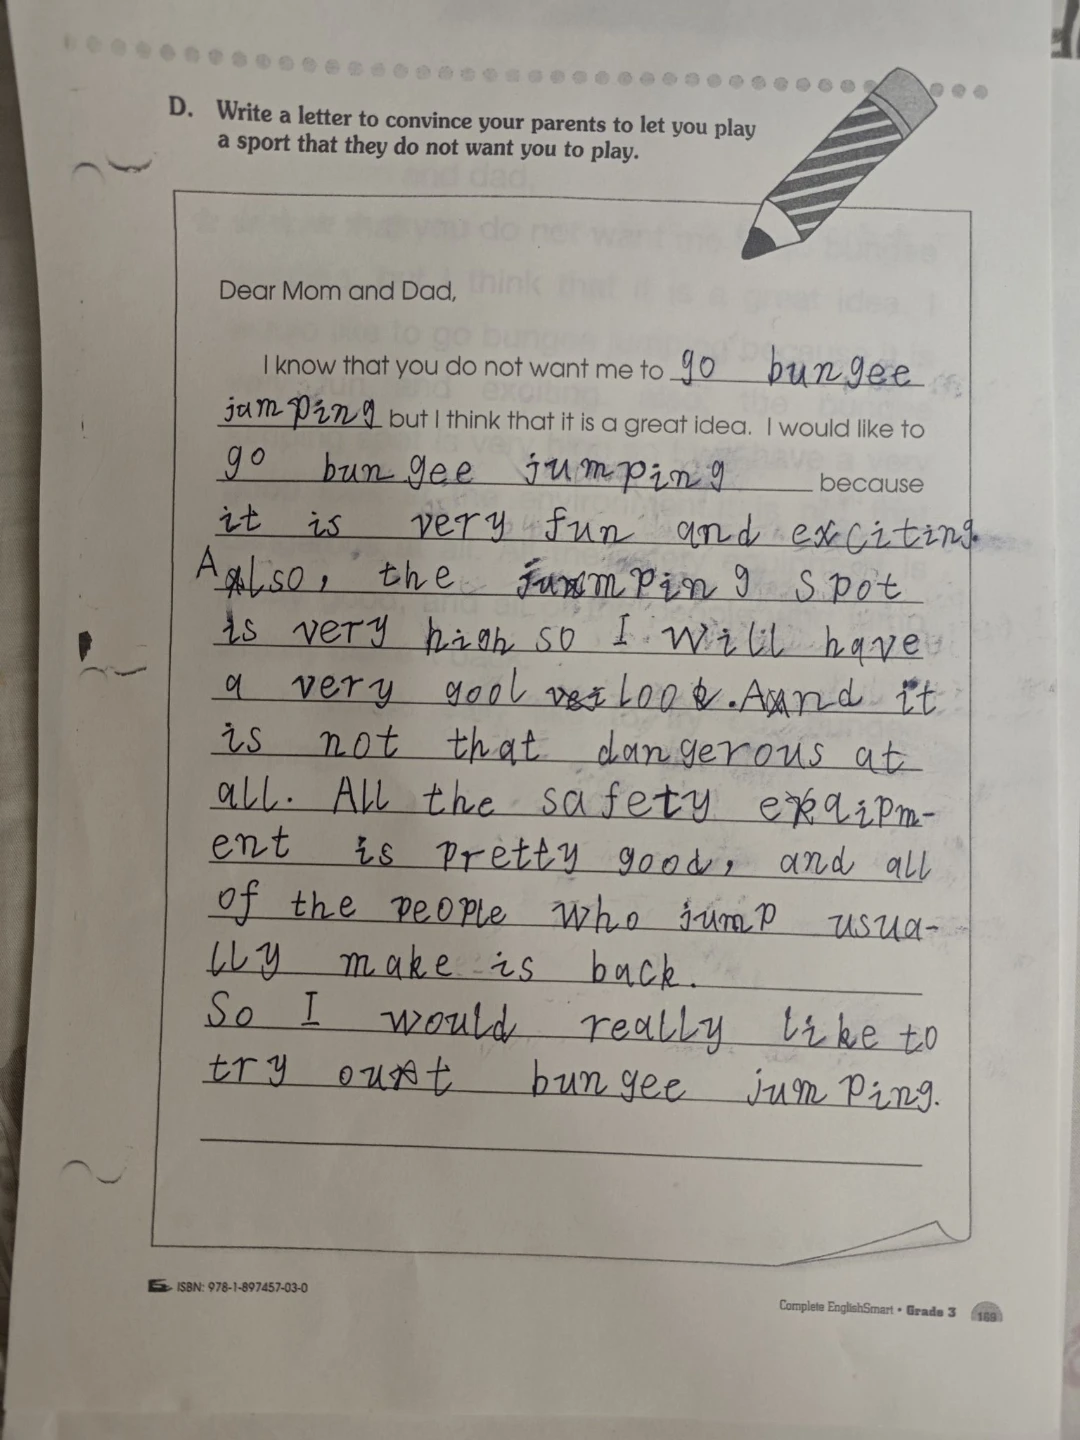 D. Write a letter to convince your parents to let you play
a sport that they do not want you to play.
Dear Mom and Dad,
I know that you do not want me to go bungee
jumping but I think that it is a great idea. I would like to
go bungee jumping because
it is very fun and exciting.
Also, the jumping spot
is very high so I will have
a very gool look. And it
is not that dangerous at
all. All the safety eqaipm-
ent is pretty good, and all
of the people who jump usua-
lly make is back.
So I would really like to
try out bungee jumping.
ISBN: 978-1-897457-03-0
Complete EnglishSmart • Grade 3 169